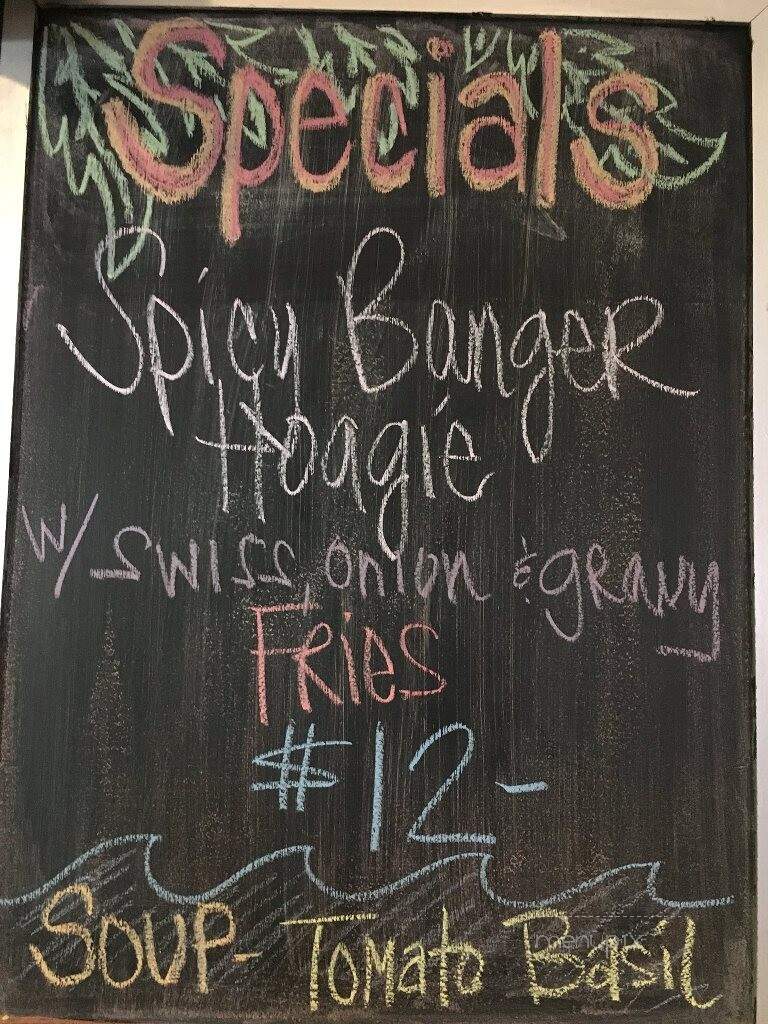 Specials
Spicy Banger
Hoagie
w/ swiss, onion & gravy
Fries
$12-
Soup- Tomato Basil